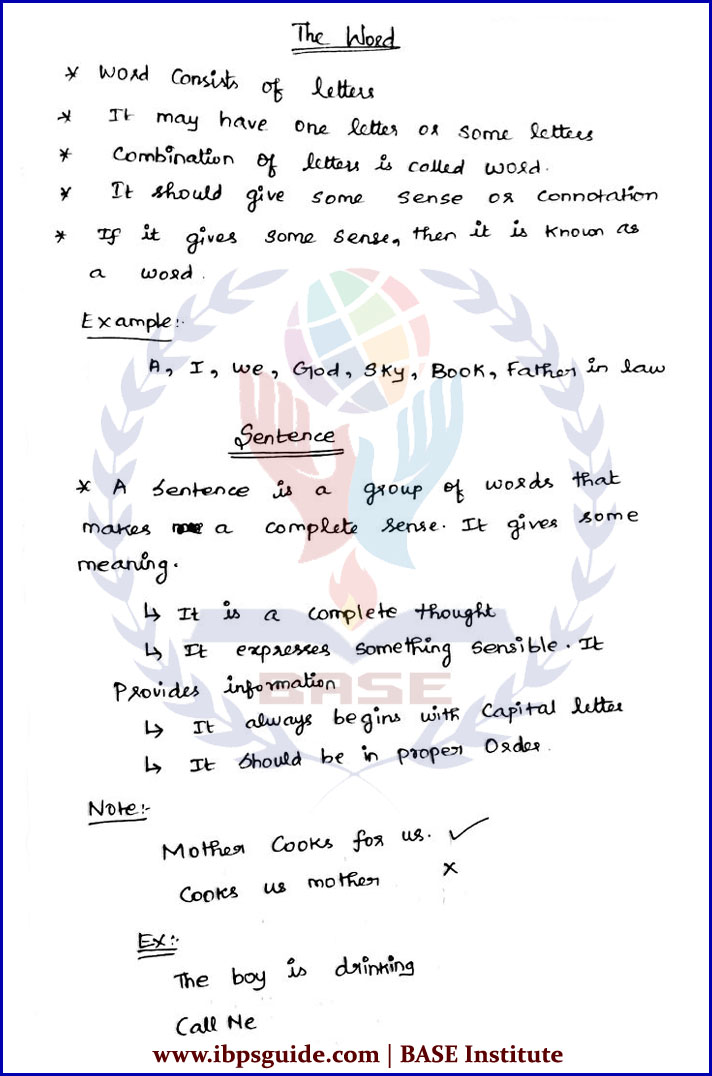 The Word
* Word consists of letters
* It may have one letter or some letters
* Combination of letters is called word.
* It should give some sense or connotation
* If it gives some sense, then it is known as
a word.
Example:-
A, I, we, God, Sky, Book, Father in law
Sentence
* A sentence is a group of words that
makes a complete sense. It gives some
meaning.
↳ It is a complete thought
↳ It expresses something sensible. It
Provides information
↳ It always begins with capital letter
↳ It should be in proper order.
BASE
Note:-
Mother Cooks for us. ✓
Cooks us mother ×
Ex:-
The boy is drinking
Call Me
www.ibpsguide.com | BASE Institute